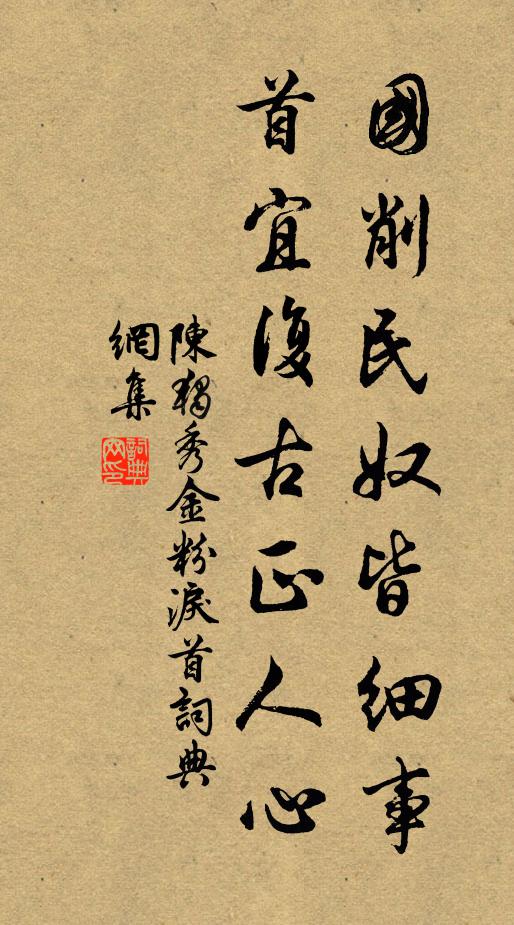 國削民奴皆細事
首宜復古正人心
陳獨秀金粉淚首詞典
網集
詞典
网印